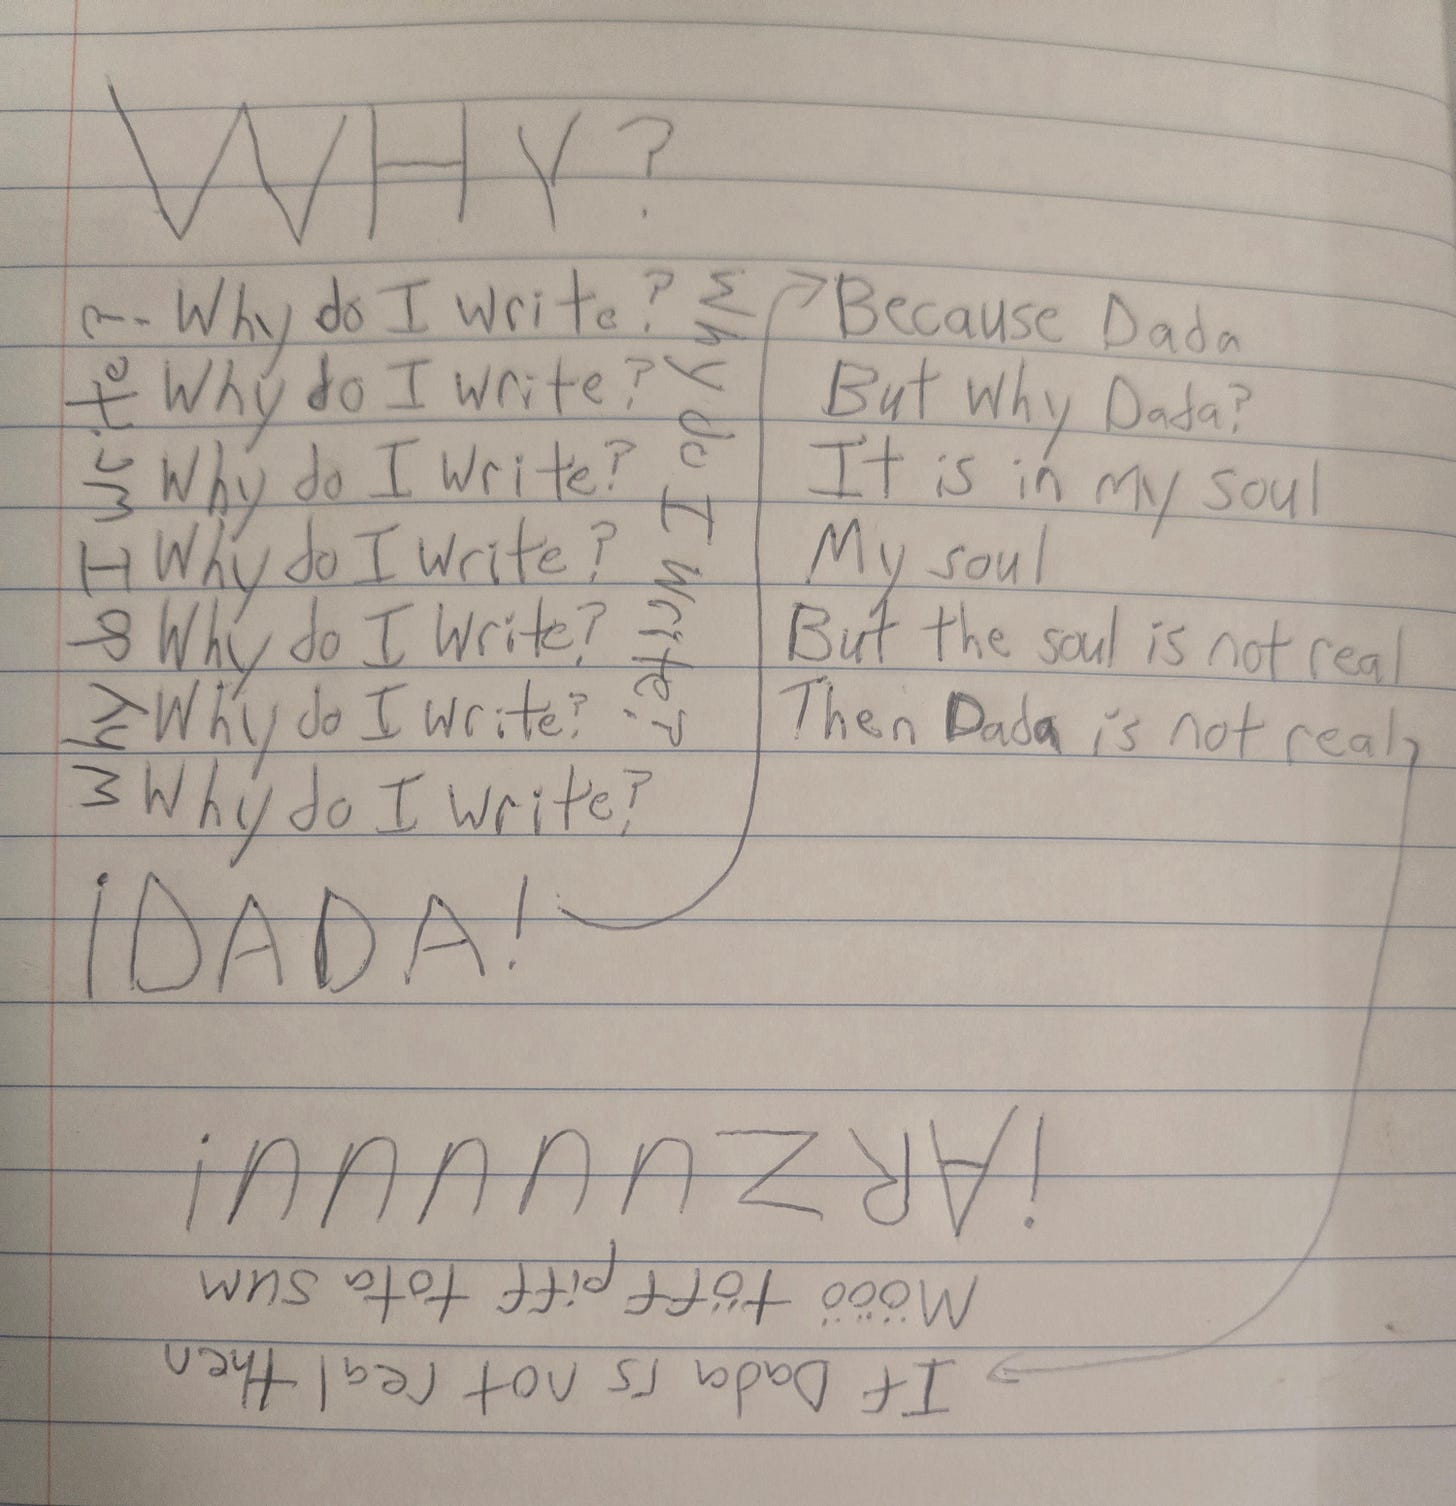 WHY?
Why do I write?
Why do I write?
Why do I write?
Why do I write?
Why do I write?
Why do I write?
Why do I write?
Why do I write?
Why do I write?
¡DADA!
Because Dada
But why Dada?
It is in my soul
My soul
But the soul is not real
Then Dada is not real
If Dada is not real then
Mööö töff piff tota sum
¡ARZUUUUU!